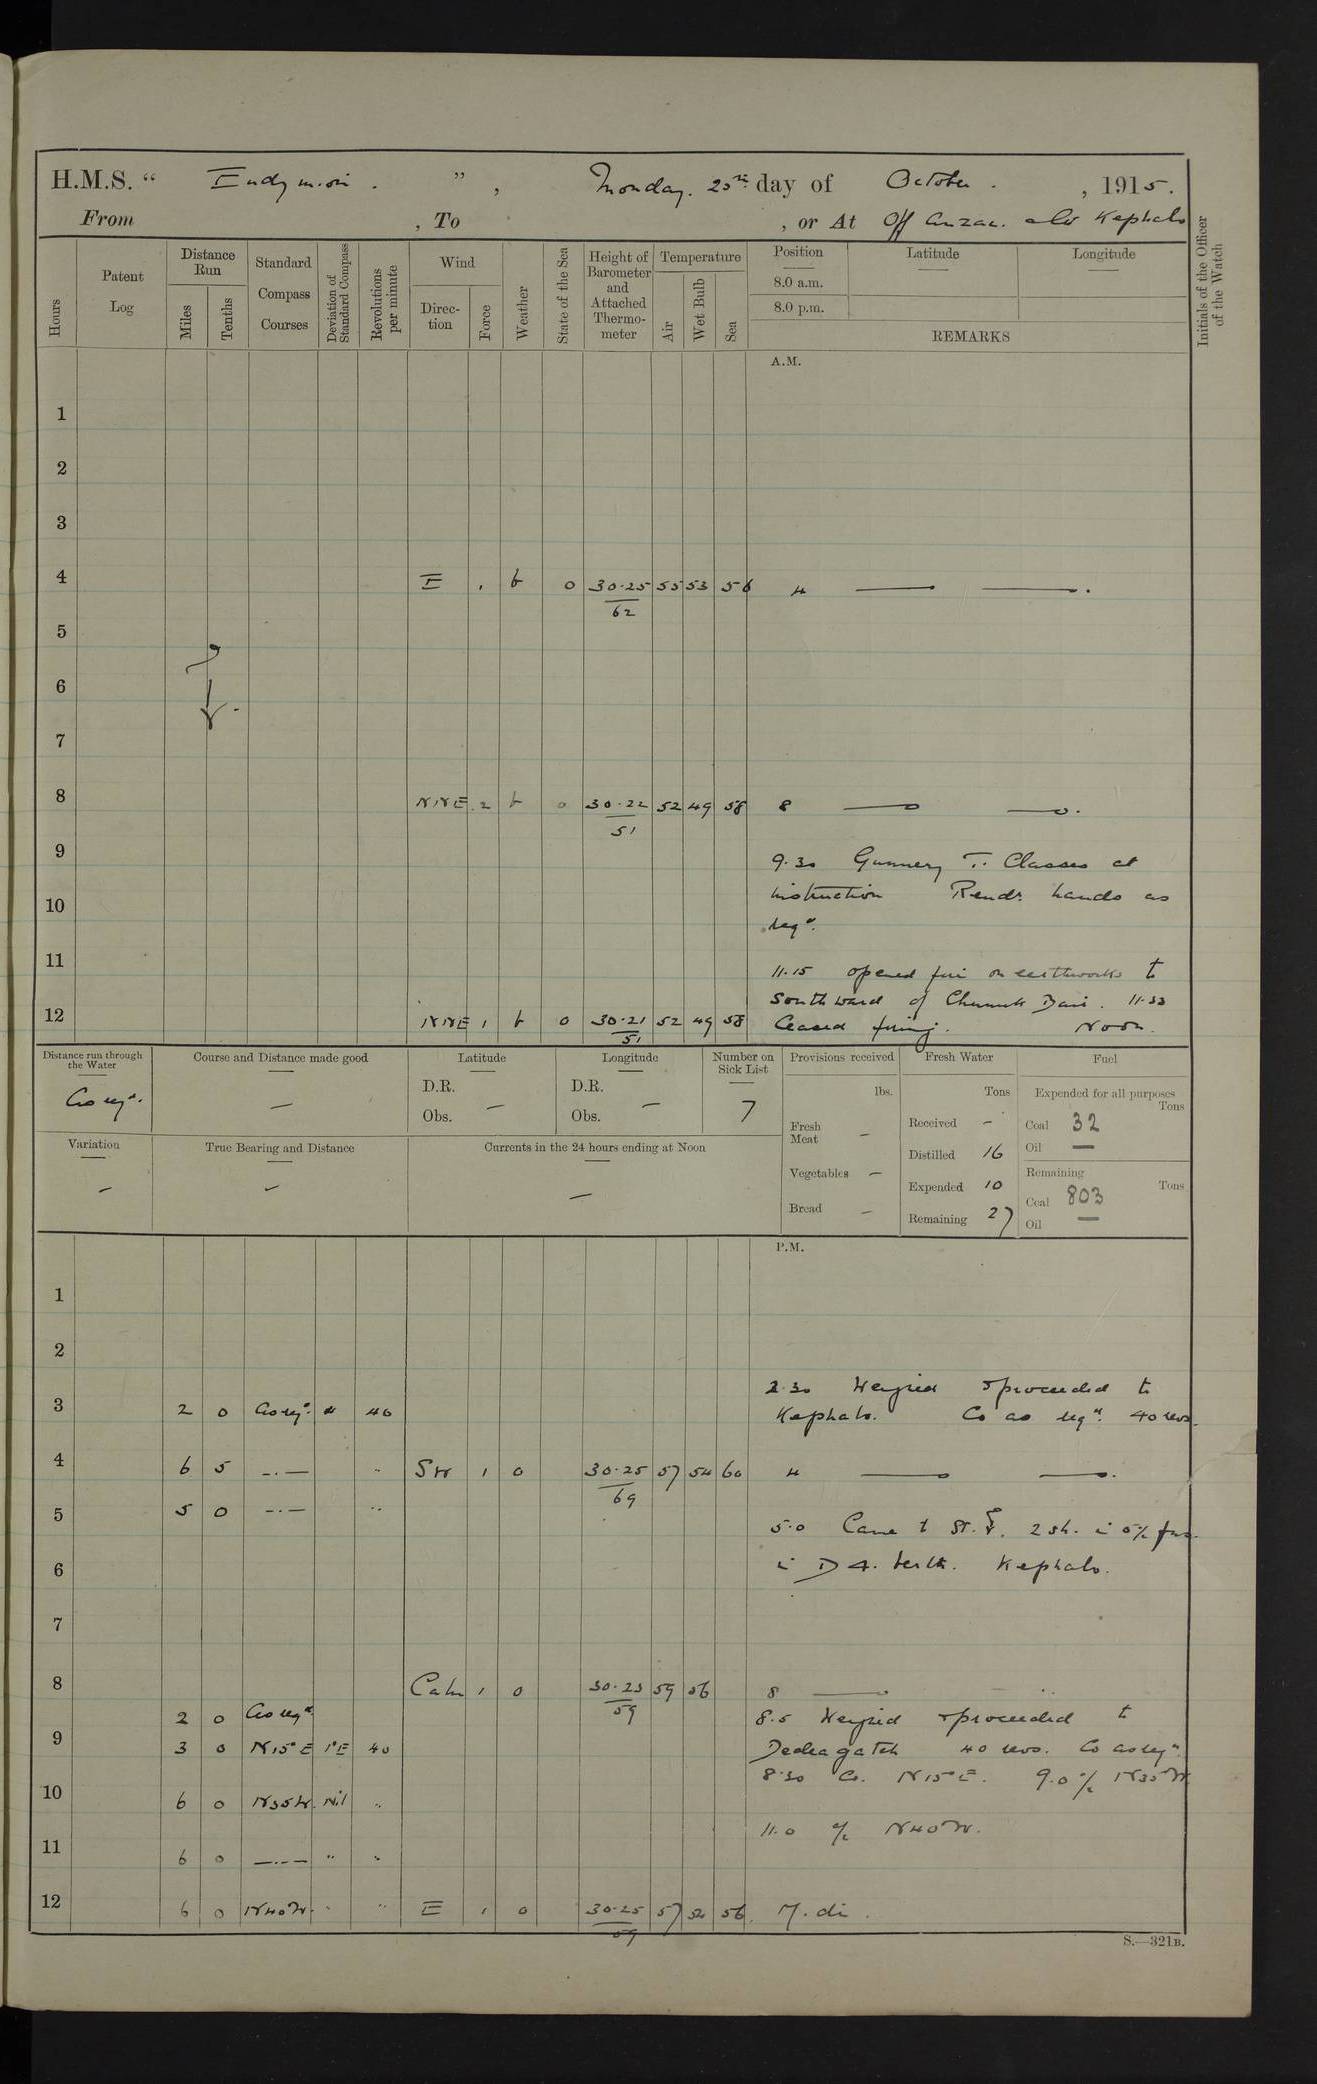 H.M.S. “ Endymion. ” , Monday. 25th day of October. , 1915.
From , To , or At Off Anzac. also Kephalo
Hours
Patent Log
Distance Run
Miles
Tenths
Standard Compass Courses
Deviation of Standard Compass
Revolutions per minute
Wind
Direc-tion
Force
Weather
State of the Sea
Height of Barometer and Attached Thermo-meter
Temperature
Air
Wet Bulb
Sea
Position
8.0 a.m.
8.0 p.m.
Latitude
Longitude
REMARKS
Initials of the Officer of the Watch
A.M.
1
2
3
4 E 1 b 0 30.25 55 53 56 4 — —.
62
5
6
7
8 NNE 2 b 0 30.22 52 49 58 8 — —.
51
9
9.30 Gunnery T. Classes at
10 instruction Remdr. hands as
reqd.
11
11.15 opened fire on earthworks to
southward of Chunuk Bair. 11.33
12 NNE 1 b 0 30.21 52 49 58 Ceased firing. Noon.
51
Distance run through the Water
As reqd.
Course and Distance made good
—
Latitude
D.R.
Obs. —
Longitude
D.R.
Obs. —
Number on Sick List
7
Variation
—
True Bearing and Distance
—
Currents in the 24 hours ending at Noon
—
Provisions received
lbs.
Fresh Meat —
Vegetables —
Bread —
Fresh Water
Tons
Received —
Distilled 16
Expended 10
Remaining 27
Fuel
Expended for all purposes
Tons
Coal 32
Oil —
Remaining
Tons
Coal 803
Oil —
P.M.
1
2
2.30 Weighed & proceeded to
3 2 0 As reqd. 40 Kephalo. Co as reqd. 40 revs.
4 6 5 -.- " SW 1 0 30.25 57 54 60 4 — —.
69
5 5 0 -.- "
5.0 Came to St. 2 sh. in 5½ fms.
6 in D 4. berth. Kephalo.
7
8 Calm 1 0 30.23 59 56 8 —
59
2 0 As reqd. 8.5 Weighed & proceeded to
9 3 0 N15°E 1°E 40 Dedeagatch 40 revs. Co as reqd.
8.30 Co. N15°E. 9.0 a/c N35°W.
10 6 0 N35W. Nil "
11.0 a/c N40°W.
11 6 0 -.- " "
12 6 0 N40W. " " E 1 0 30.25 57 52 56 M. di.
59
S.—321B.